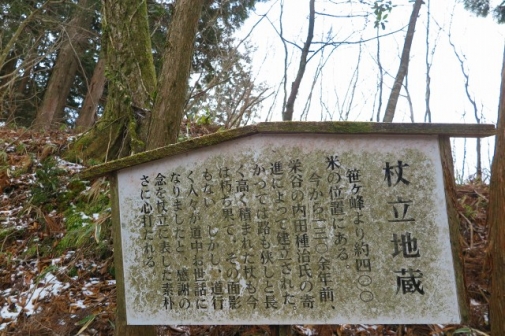 杖立地蔵
笹ヶ峰より約四〇〇
米の位置にある
今から二二〇余年前、
栄谷の内田種治氏の寄
進によって建立された
かつては路も狭しと長
く高く積まれた杖も今
は朽ち果て、その面影
もない しかし、道行
く人々が道中お世話に
なりましたと、感謝の
念を杖立に表した素朴
さに心引かれる